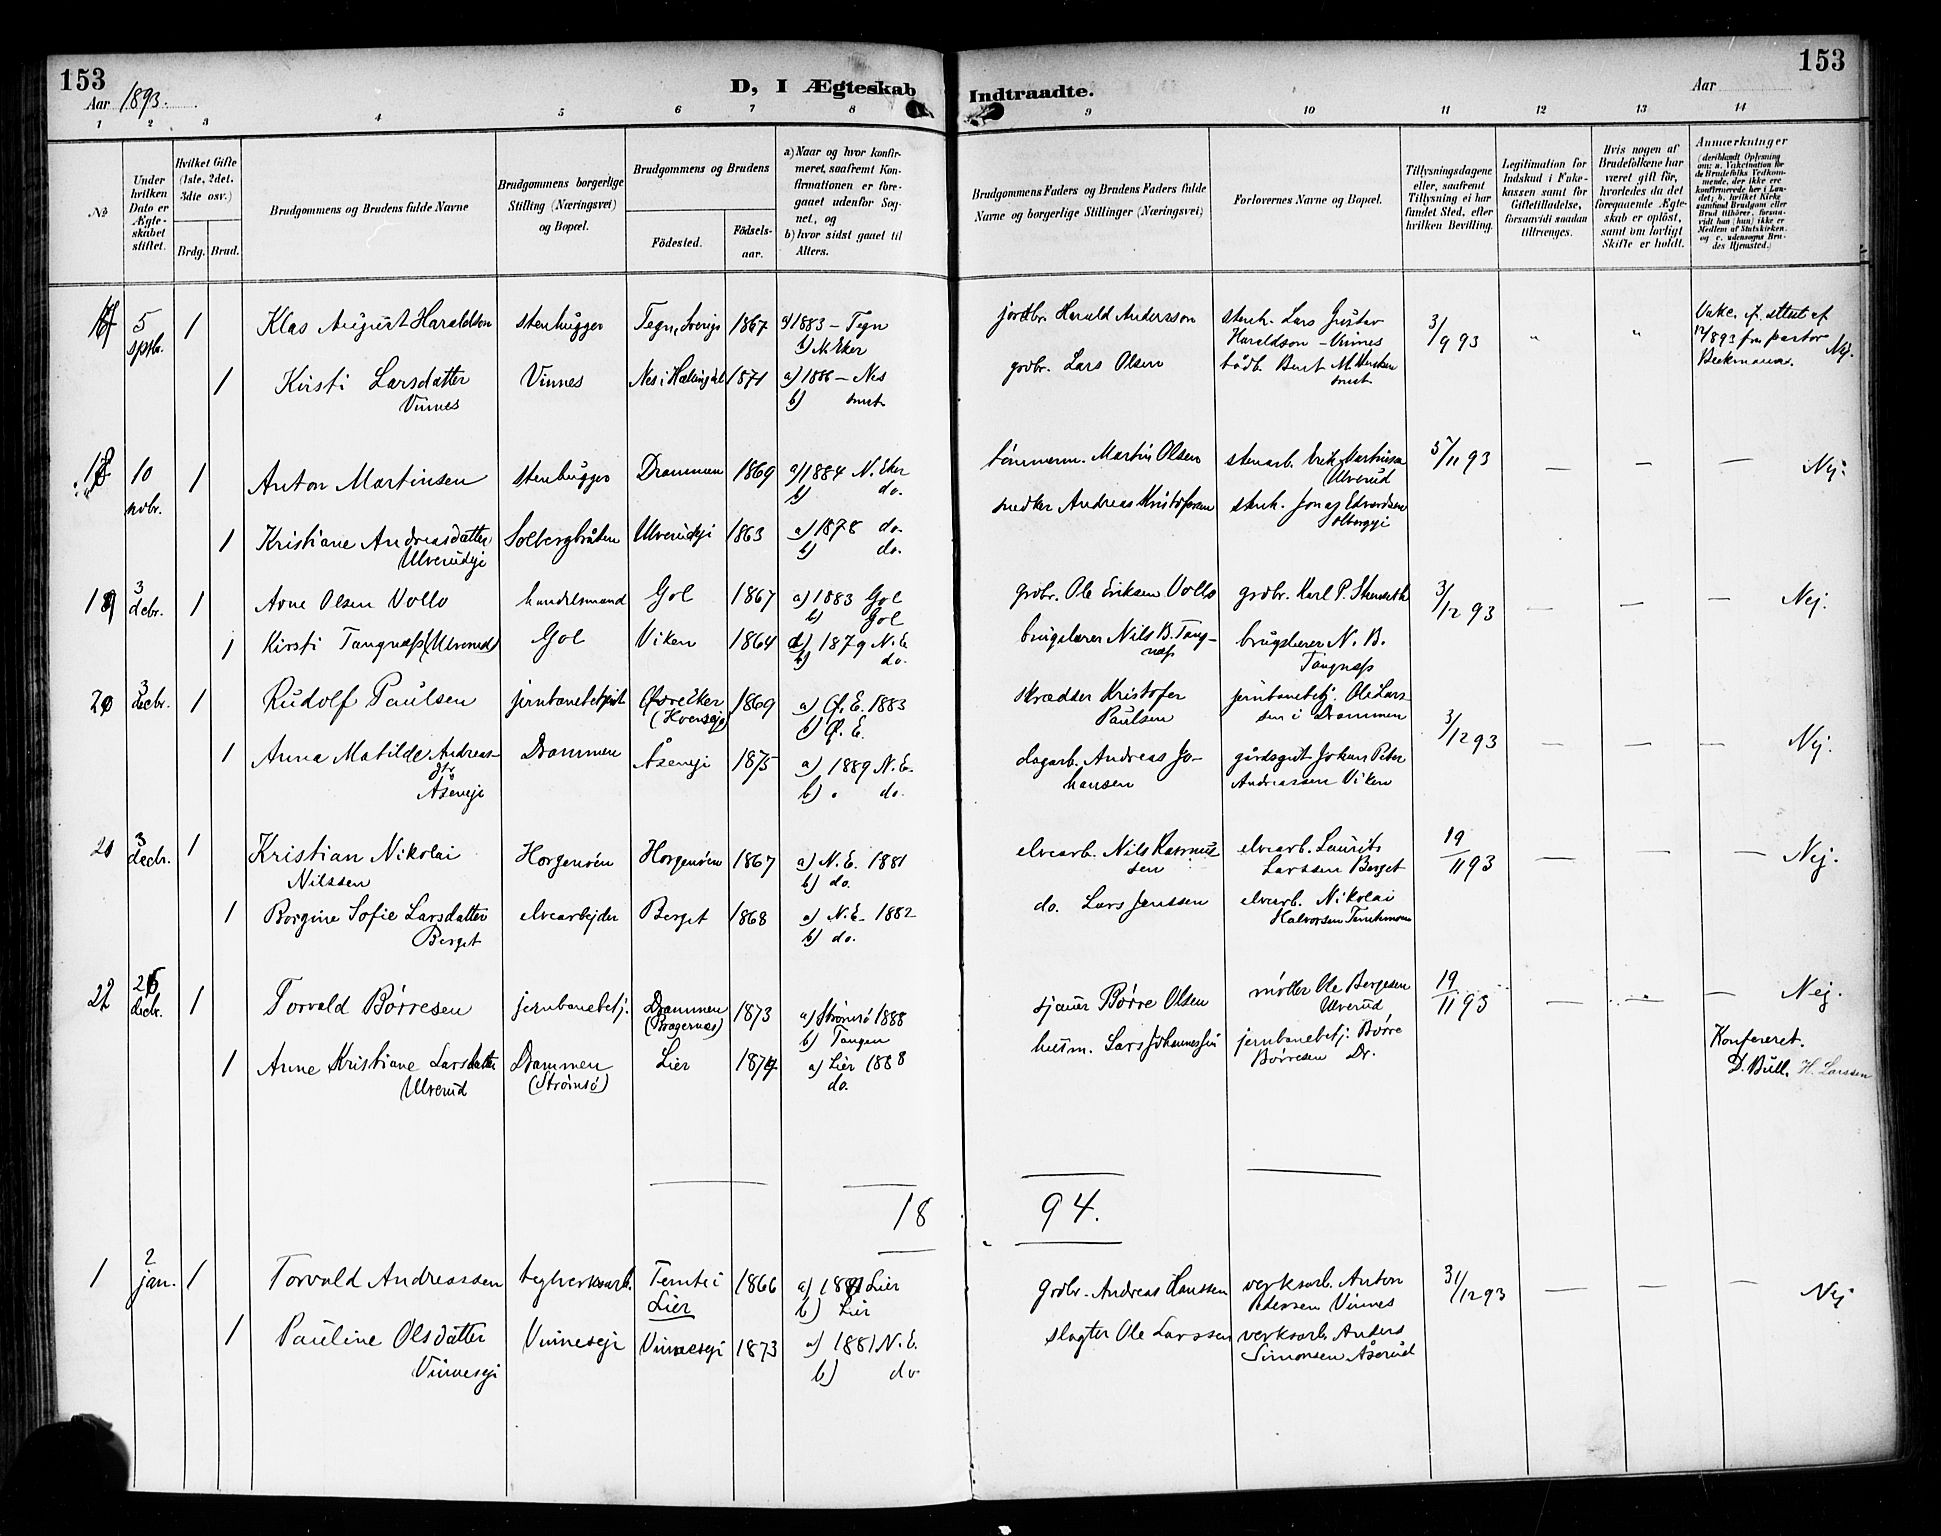 153
Aar 1893.
D, I Ægteskab Indtraadte.
153
Aar
1 2 3 4 5 6 7 8 9 10 11 12 13 14
No
Under hvilken Dato er Ægteskabet stiftet.
Hvilket Gifte (1ste, 2det, 3die osv.)
Brdg. Brud.
Brudgommens og Brudens fulde Navne
Brudgommens borgerlige Stilling (Næringsvei) og Bopæl.
Brudgommens og Brudens
Födested.
Födsels-aar.
a) Naar og hvor konfirmeret, saafremt Konfirmationen er foregaaet udenfor Sognet, og
b) hvor sidst gaaet til Alters.
Brudgommens Faders og Brudens Faders fulde Navne og borgerlige Stillinger (Næringsvei)
Forlovernes Navne og Bopæl.
Tillysningsdagene eller, saafremt Tillysning ei har fundet Sted, efter hvilken Bevilling.
Legitimation for Indskud i Enkekassen samt for Giftetilladelse, forsaavidt saadan tiltrænges.
Hvis nogen af Brudefolkene har været gift för, hvorledes da det foregaaende Ægteskab er oplöst, samt om lovligt Skifte er holdt.
Anmærkninger
(deriblandt Oplysning om: a. Vakcination for de Brudefolks Vedkommende, der ikke ere konfirmerede her i Landet; b. hvilket Kirkesamfund Brudgom eller Brud tilhörer, forsaavidt han (hun) ikke er Medlem af Statskirken, og c. udensogns Brudes Hjemsted.)
17 5 sptb. 1 Klas August Haraldson stenhugger Tegn, Sverige 1867 a) 1883 – Tegn b) N. Eker jordbr. Harald Andersson stenh. Lars Gustav Haraldson – Vinnes 3/9 93 " " Vakc. if. attest af 12/893 fra pastor Nej.
1 Kirsti Larsdatter Vinnes Vinnes Nes i Hallingdal 1871 a) 1886 – Nes b) grdbr. Lars Olsen
18 10 nvbr. 1 Anton Martinsen stenhugger Drammen 1869 a) 1884 N. Eker b) do. tömmerm. Martin Olsen stenarb. Ulverud 5/11 93 — — — Nej.
1 Kristiane Andreasdatter Ulverudeji Solbergbråten Ulverudeji 1863 a) 1878 do. b) do. snedker Andreas Kristofersen stenh. Jonas Edvardsen Solbergeji
19 3 decbr. 1 Arne Olsen Vollo handelsmand Gol 1867 a) 1883 Gol b) Gol grdbr. Ole Eriksen Vollo grdbr. Karl P. Stenseth 3/12 93 — — — Nej.
1 Kirsti Tangnæss (Ulverud) Gol Viken 1864 a) 1879 N. E. b) do. brugslærer Nils B. Tangnæss brugslærer N. B. Tangnæss
20 3 decbr. 1 Rudolf Paulsen jernbanebetjent Øvre Eker 1869 a) Ø. E. 1883 b) Ø. E. skrædder Kristofer Paulsen jernbanebetj. Ole Larssen i Drammen 3/12 93 — — — Nej.
1 Anna Matilde Andreasdtr. Åseneji Drammen Åseneji 1875 a) 1889 N. E. b) " do. dagarb. Andreas Johansen gårdsgut Johan Peter Andreassen Viken
21 3 decbr. 1 Kristian Nikolai Nilssen Horgensöen Horgensöen 1867 a) N. E. 1881 b) do. elvearb. Nils Rasmussen elvearb. Laurits Larssen Berget 19/11 93 — — — Nej.
1 Borgine Sofie Larsdatter Berget elvearbejder Berget 1868 a) N. E. 1882 b) do. do. Lars Jenssen elvearb. Nikolai Halvorsen
22 26 decbr. 1 Torvald Børresen jernbanebetj. Drammen (Bragernæs) 1873 a) Strömsö 1888 b) Tangen sjauer Børre Olsen møller Ole Børgesen Ulverud 19/11 93 — — — Nej.
1 Anne Kristiane Larsdatter Ulverud Drammen (Strömsö) Lier 1874 a) Lier 1888 do. husm. Lars Johannessen jernbanebetj. Børre Børresen Dr.
Konfereret.
D. Bull. H. Larssen
18 94.
1 2 jan. 1 Torvald Andreassen teglverksarb. Lier 1866 a) 1881 Lier b) Lier grdbr. Andreas Hanssen verksarb. Anton Pedersen Vinnes 31/12 93 — — — Nej
1 Pauline Olsdatter Vinneseji Vinneseji Vinneseji 1873 a) 1881 N. E. b) do slagter Ole Larssen verksarb. Anders Simonsen Åserud